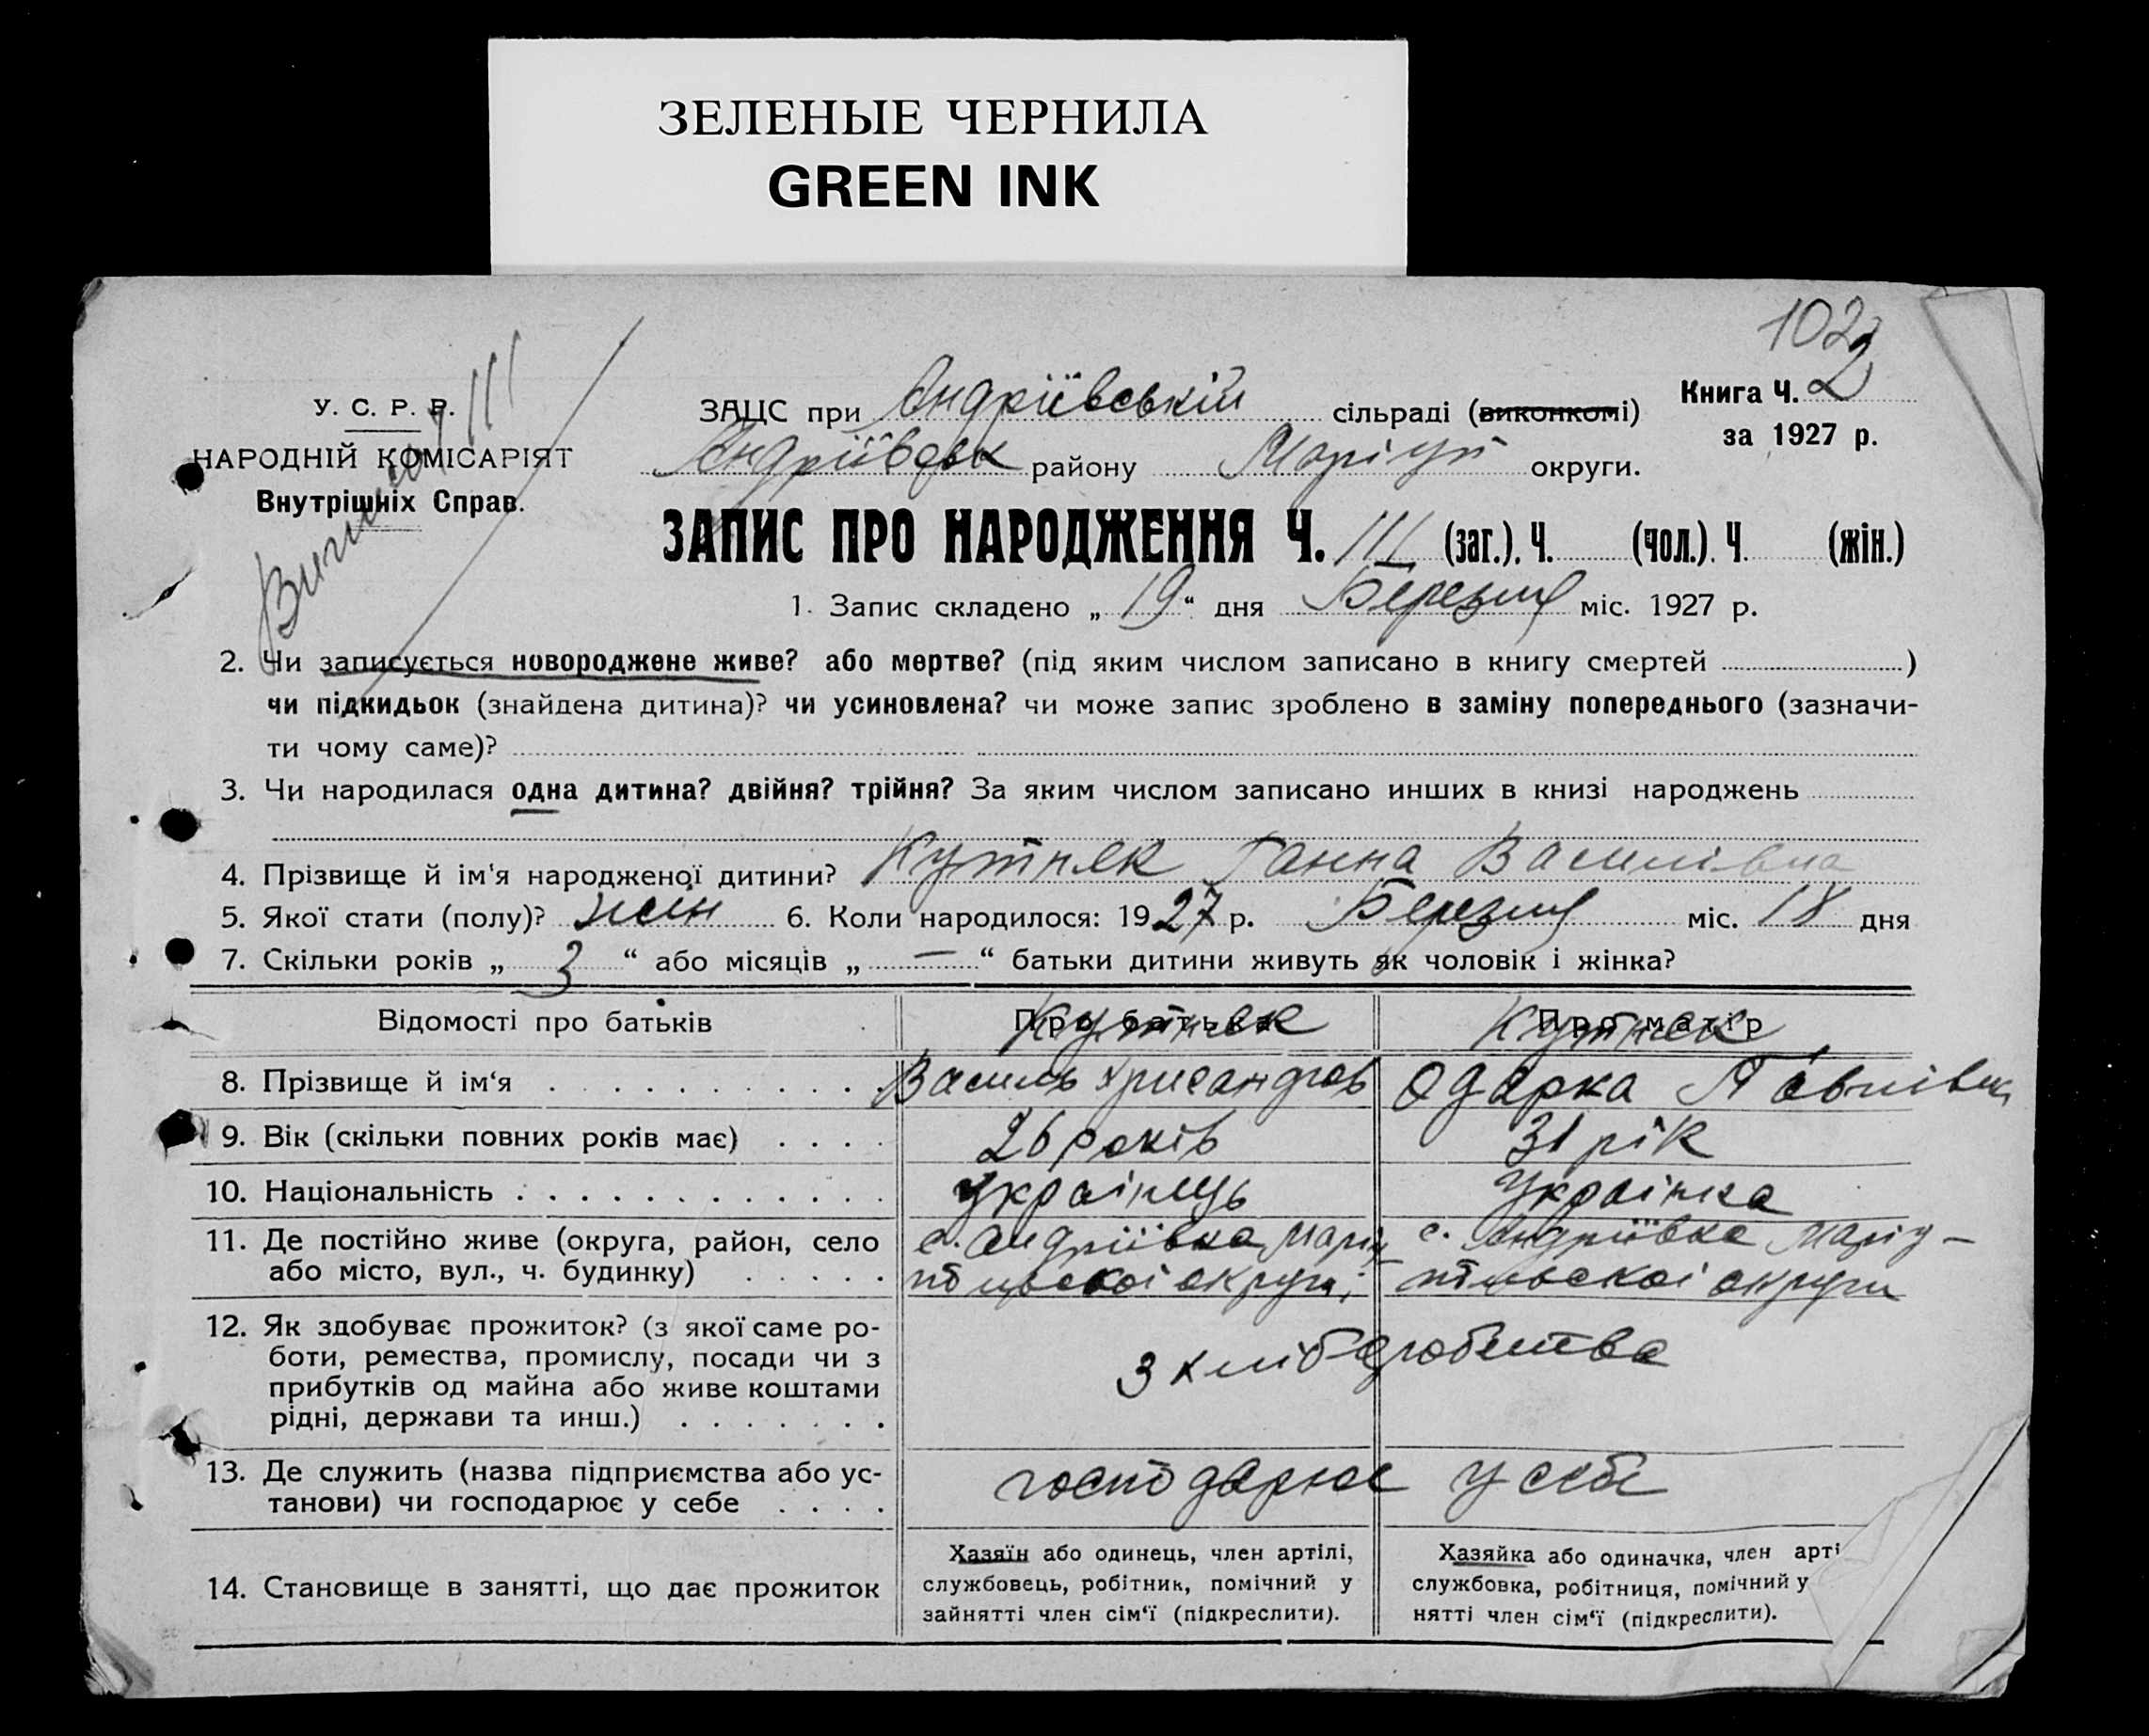 ЗЕЛЕНЫЕ ЧЕРНИЛА
GREEN INK
102
У. С. Р. Р.
НАРОДНІЙ КОМІСАРІЯТ
Внутрішніх Справ.
111
ЗАЦС при Андріївській сільраді (виконкомі)
Книга Ч. 2
за 1927 р.
Андріївськ району Маріуп округи.
ЗАПИС ПРО НАРОДЖЕННЯ Ч. 111 (заг.), Ч. (чол.). Ч. (жін.)
1. Запис складено „ 19 “ дня Березня міс. 1927 р.
2. Чи записується новороджене живе? або мертве? (під яким числом записано в книгу смертей )
чи підкидьок (знайдена дитина)? чи усиновлена? чи може запис зроблено в заміну попереднього (зазначи-
ти чому саме)?
3. Чи народилася одна дитина? двійня? трійня? За яким числом записано инших в книзі народжень
4. Прізвище й ім‘я народженої дитини? Кутняк Ганна Василівна
5. Якої стати (полу)? жін 6. Коли народилося: 1927 р. Березня міс. 18 дня
7. Скільки років „ 3 “ або місяців „ — “ батьки дитини живуть як чоловік і жінка?
Відомості про батьків Про батька Про матір
Кутняк Кутняк
8. Прізвище й ім‘я Василь Хрисандров Одарка Павлівна
9. Вік (скільки повних років має) 26 років 31 рік
10. Національність Українець Українка
11. Де постійно живе (округа, район, село с. Андріївка Маріу- с. Андріївка Маріу-
або місто, вул., ч. будинку) пільської округи; пільської округи
12. Як здобуває прожиток? (з якої саме ро-
боти, ремества, промислу, посади чи з
прибутків од майна або живе коштами
рідні, держави та инш.)
З хліборобства
13. Де служить (назва підприємства або ус-
танови) чи господарює у себе
господарює у себе
14. Становище в занятті, що дає прожиток
Хазяїн або одинець, член артілі,
службовець, робітник, помічний у
зайнятті член сім‘ї (підкреслити).
Хазяйка або одиначка, член арті
службовка, робітниця, помічний у
нятті член сім‘ї (підкреслити).